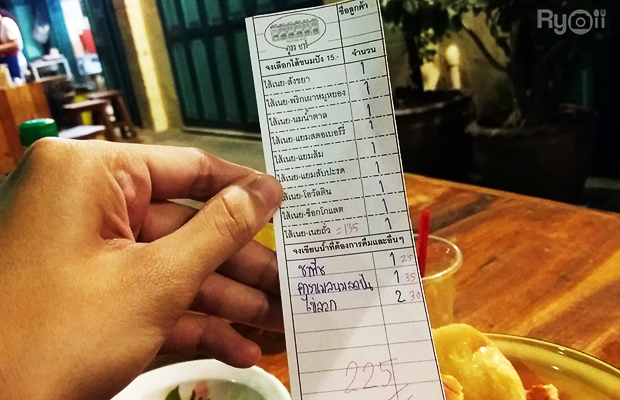 Ryoii
ชื่อลูกค้า
จงเลือกไส้ขนมปัง 15.- จำนวน
ไส้เนย-สังขยา 1
ไส้เนย-พริกเผาหมูหยอง 1
ไส้เนย-นมน้ำตาล 1
ไส้เนย-แยมสตอเบอร์รี่ 1
ไส้เนย-แยมส้ม 1
ไส้เนย-แยมสับปะรด 1
ไส้เนย-โอวัลติน 1
ไส้เนย-ช็อกโกแลต 1
ไส้เนย-เนยถั่ว =135 1
จงเขียนน้ำที่ต้องการดื่มและอื่นๆ
1 25
1 35
ไข่ลวก 2 30
225